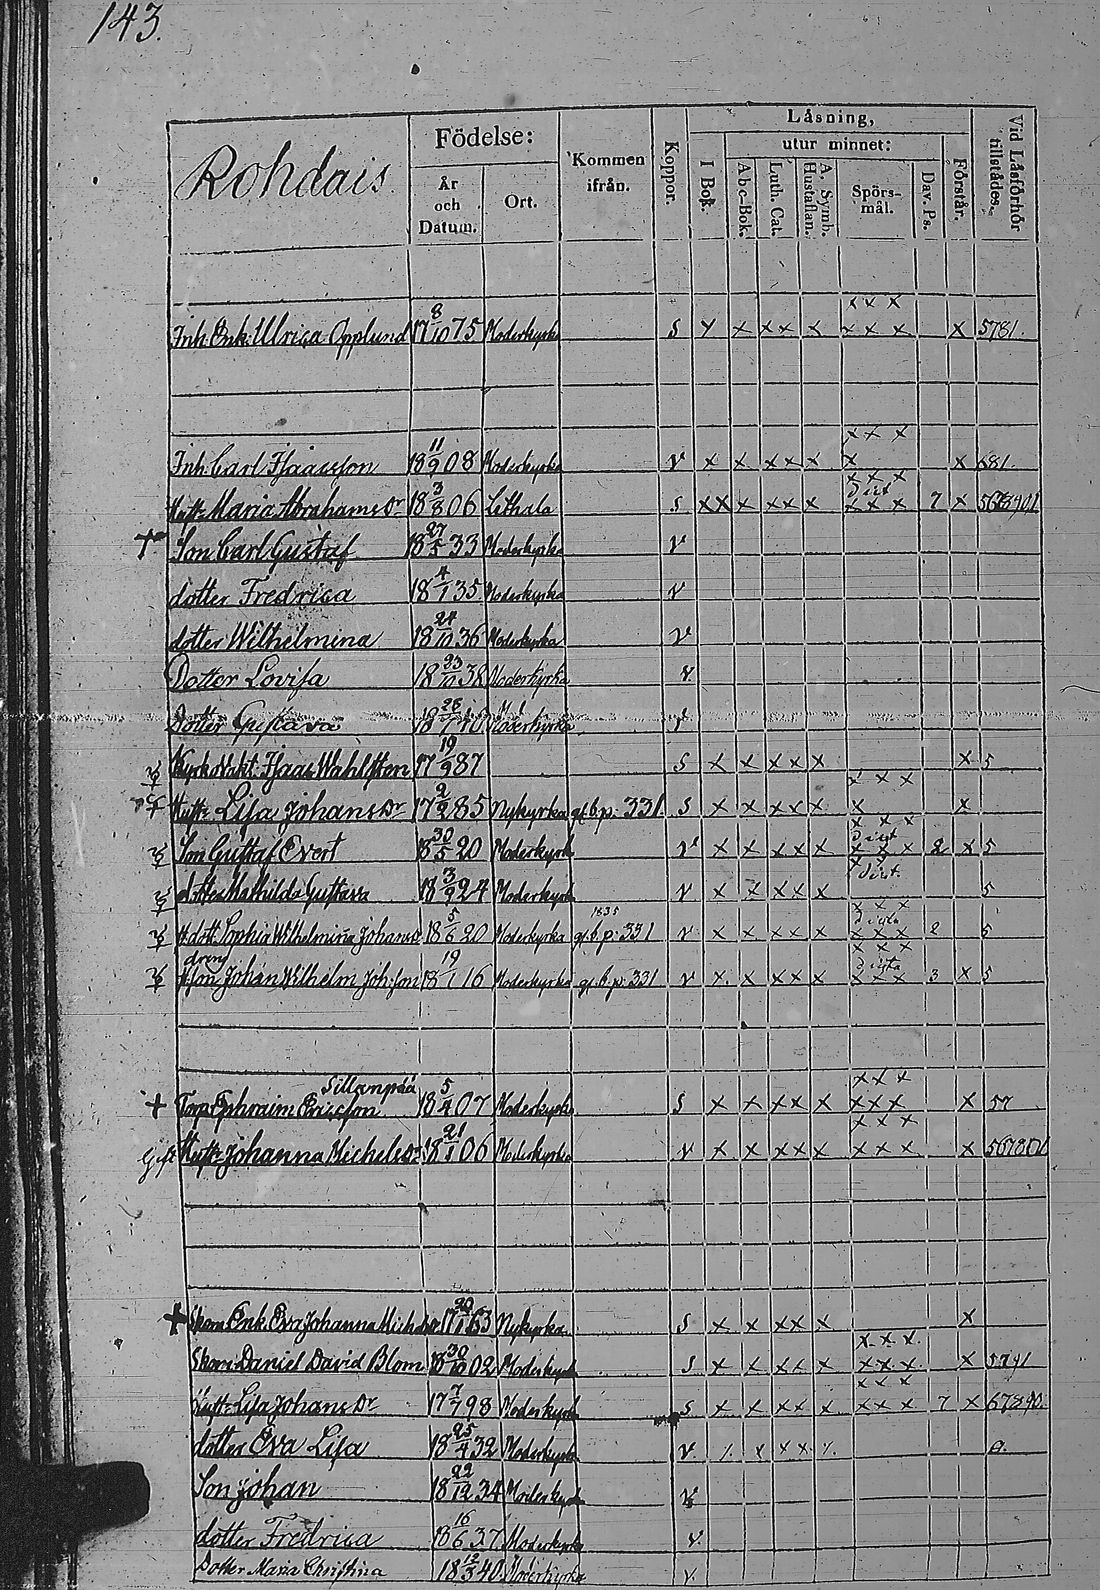 143.
Rohdais
Födelse:
År och Datum.
Ort.
Kommen ifrån.
Koppor.
Läsning,
I Bok.
utur minnet:
Abc-Bok.
Luth. Cat.
A. Symb. Hustaflan.
Spörs-mål.
Dav. Ps.
Förstår.
Vid Läsförhör tillstädes.
x x x
Inh. Enk. Ulrica Opplund 17 8/10 75 Moderkyrk S x x xx x x x x x 5781.
x x x
Inh Carl Isaacsson 18 11/9 08 Moderkyrka V x x xx x x x 681.
x x x
Hust. Maria Abrahamsdr 18 3/8 06 Lethala S xx x xx x x x x 7 x
Son Carl Gustaf 18 27/5 33 Moderkyrka V
dotter Fredrica 18 4/1 35 Moderkyrka V
dotter Wilhelmina 18 24/10 36 Moderkyrka V
Dotter Lovisa 18 23/10 38 Moderkyrka V
Dotter Gustava 18 Moderkyrka V
Kyrkovakt. Isaac Wahlsten 17 19/9 87 S x x xx x x 5
x x x
Hust. Lisa Johansdr 17 2/2 85 Nykyrka gl.b.p. 331. S x x xx x x x
x x x
Son Gustaf Evert 18 30/5 20 Moderkyrk V x x xx x x x x 2 x 5
dotter Mathilda Gustava 18 3/9 24 Moderkyrk V x x xx x 5
x x x
dott. Sophia Wilhelmina Johansd 18 5/6 20 Moderkyrka 1835 gl.b.p. 331 V x x xx x x x x 2 5
x x x
dreng
son Johan Wilhelm Joh:son 18 19/1 16 Moderkyrka gl.b.p. 331 V x x xx x x x x 3 x 5
Sillanpää
x x x
+ Torp. Ephraim Ericsson 18 5/4 07 Moderkyrk S x x xx x x x x x 57
x x x
Gift Hust. Johanna Michelsdr 18 21/1 06 Moderkyrka V x x xx x x x x x
+ Skom. Enk. Eva Johanna 17 20/1 63 Nykyrka S x x xx x x
x x x
Skom: Daniel David Blom 18 30/10 02 Moderkyrk S x x xx x x x x x
x x x
Hust. Lisa Johansdr 17 7/7 98 Moderkyrk S x x xx x x x x 7 x
dotter Eva Lisa 18 25/4 32 Moderkyrk V. x x x
Son Johan 18 22/12 34 Moderkyrk V
dotter Fredrica 18 16/6 37 Moderkyrka V.
Dotter Maria Christina 18 13/3 40 Moderkyrka V